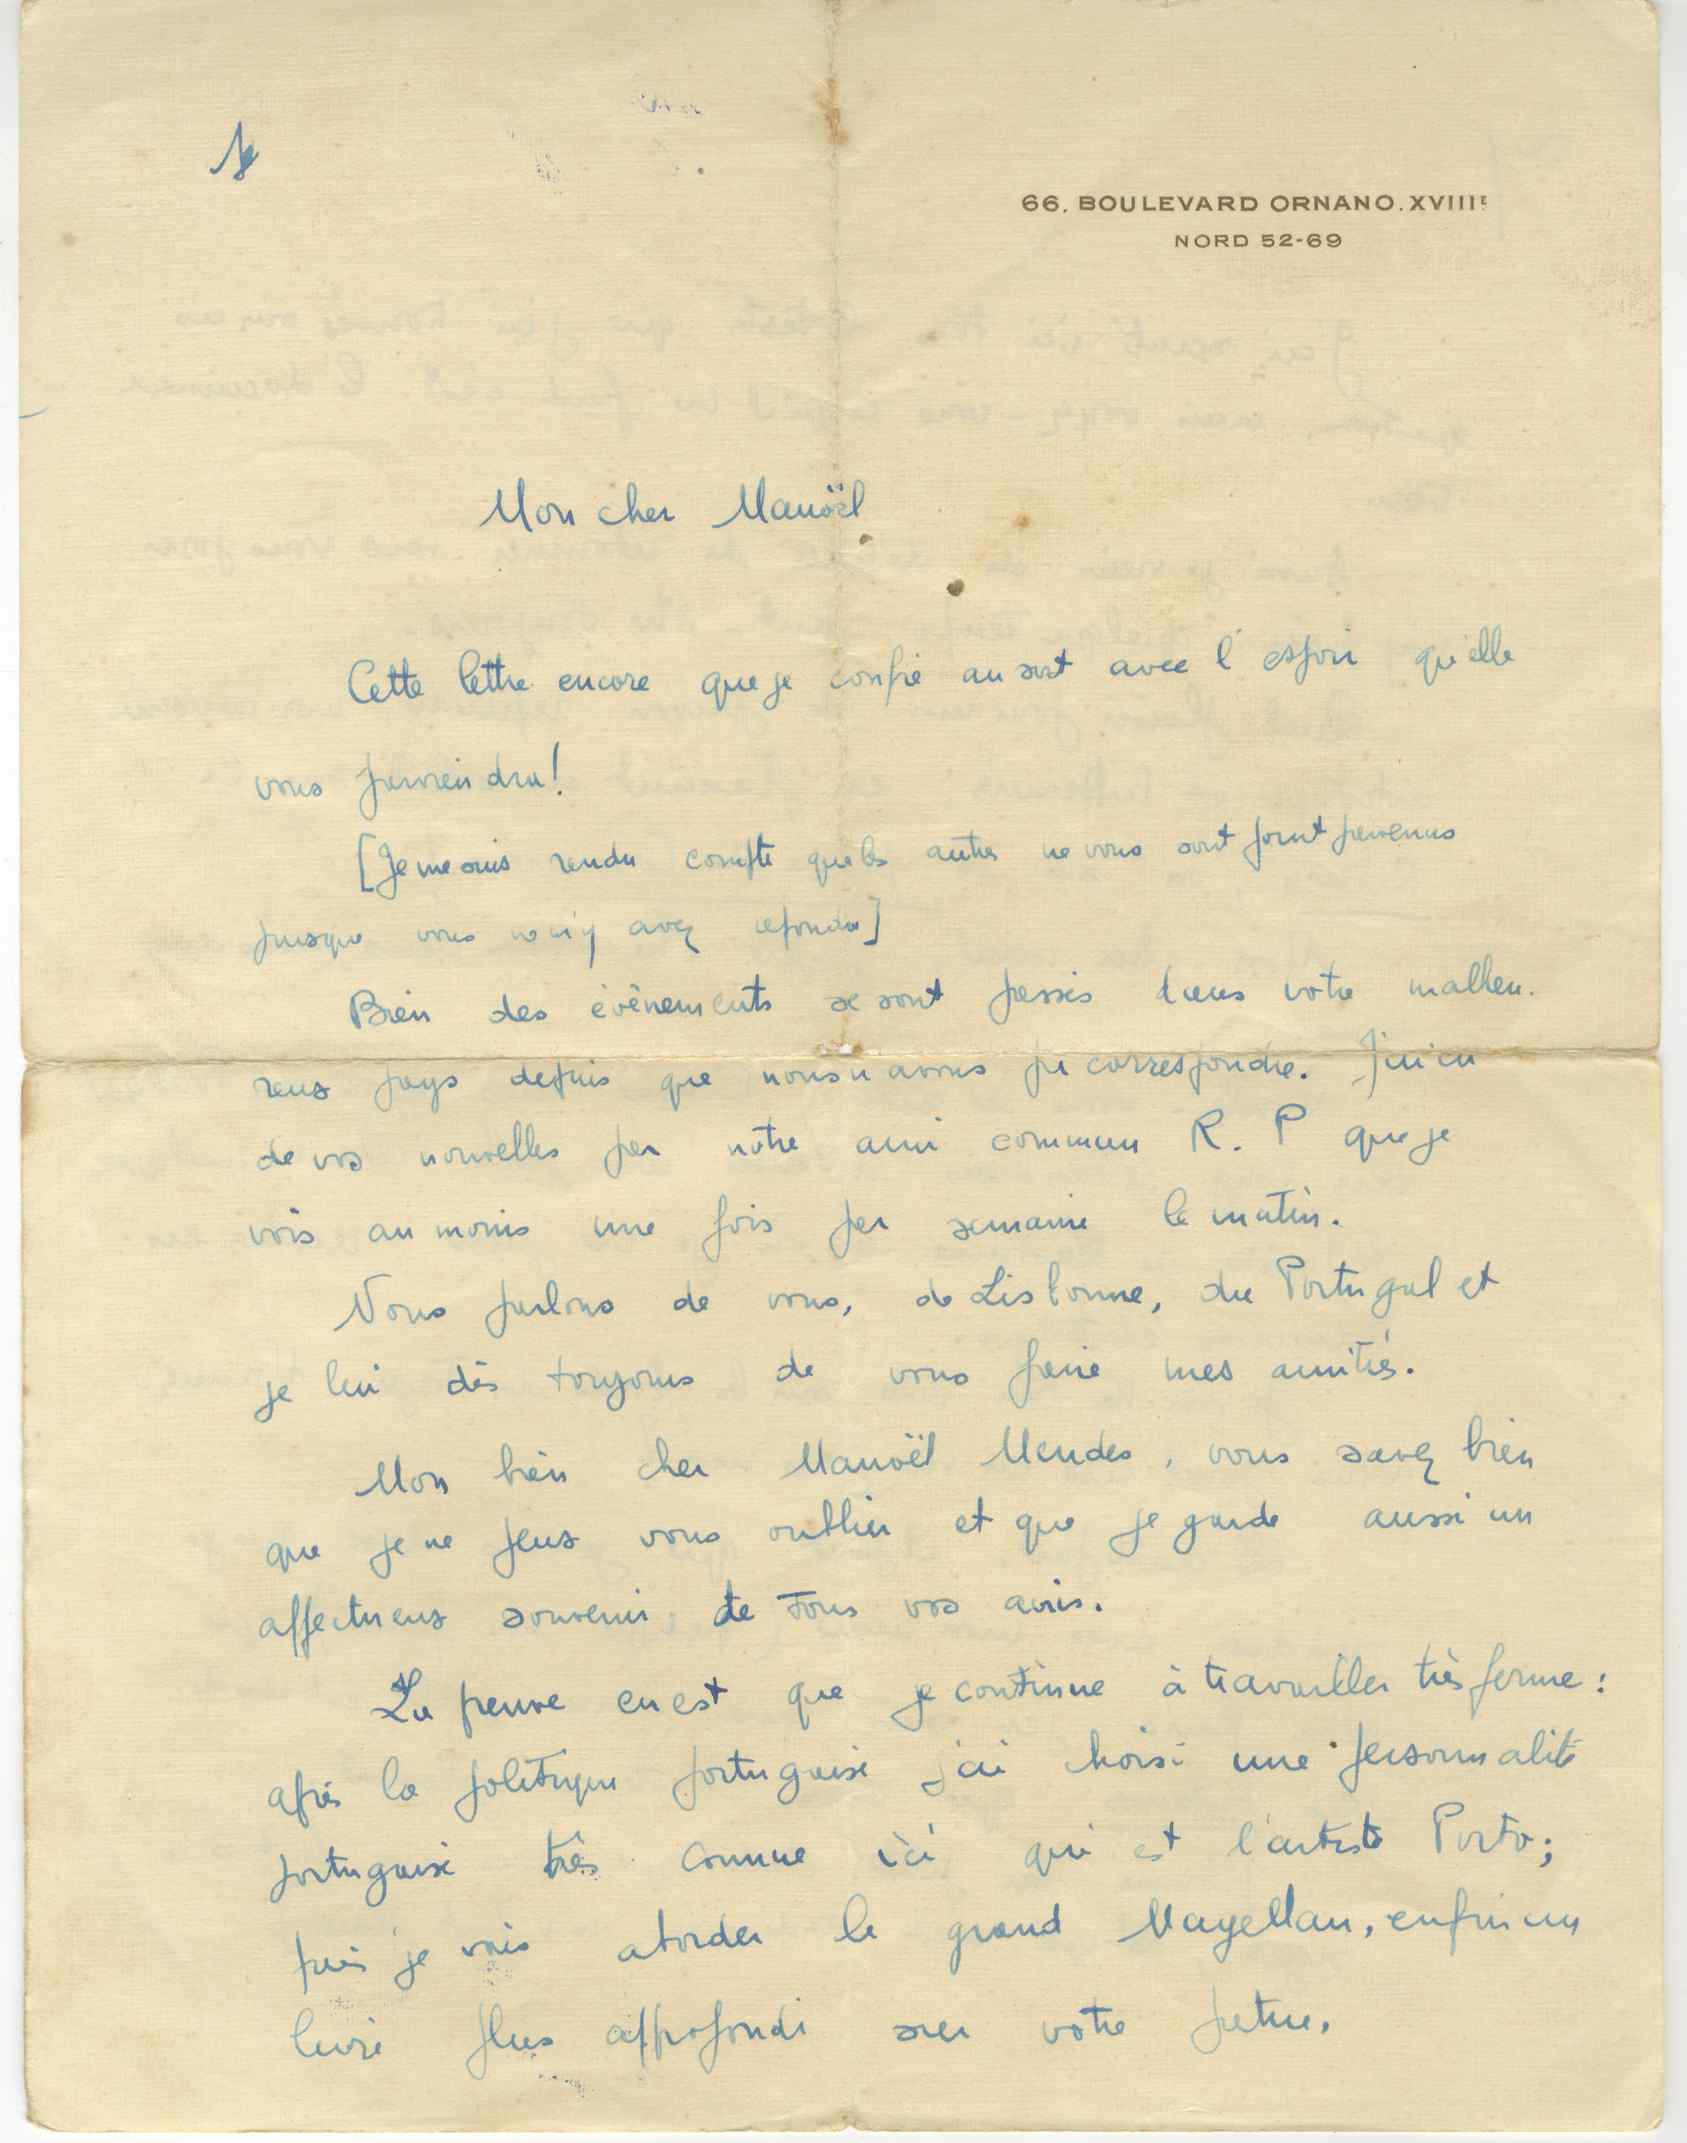 66. BOULEVARD ORNANO. XVIIIE
NORD 52-69
Mon cher Manoël
Cette lettre encore que je confie au sort avec l'espoir qu'elle
vous parviendra!
[Je me suis rendu compte que les autres ne vous sont point parvenus
puisque vous n'y avez répondu]
Bien des évènements se sont passés dans votre malheu-
reux pays depuis que nous n'avons pu correspondre. J'ai eu
de vos nouvelles par notre ami commun R. P que je
vois au moins une fois par semaine le matin.
Nous parlons de vous, de Lisbonne, du Portugal et
je lui dis toujours de vous faire mes amitiés.
Mon bien cher Manoël Mendes, vous savez bien
que je ne peux vous oublier et que je garde aussi un
affectueux souvenir, de tous vos amis.
La preuve en est que je continue à travailler très ferme:
après la politique portugaise j'ai choisi une personnalité
portugaise très connue ici qui est l'artiste Porto;
puis je vais aborder le grand Magellan, enfin un
livre plus approfondi sur votre patrie.